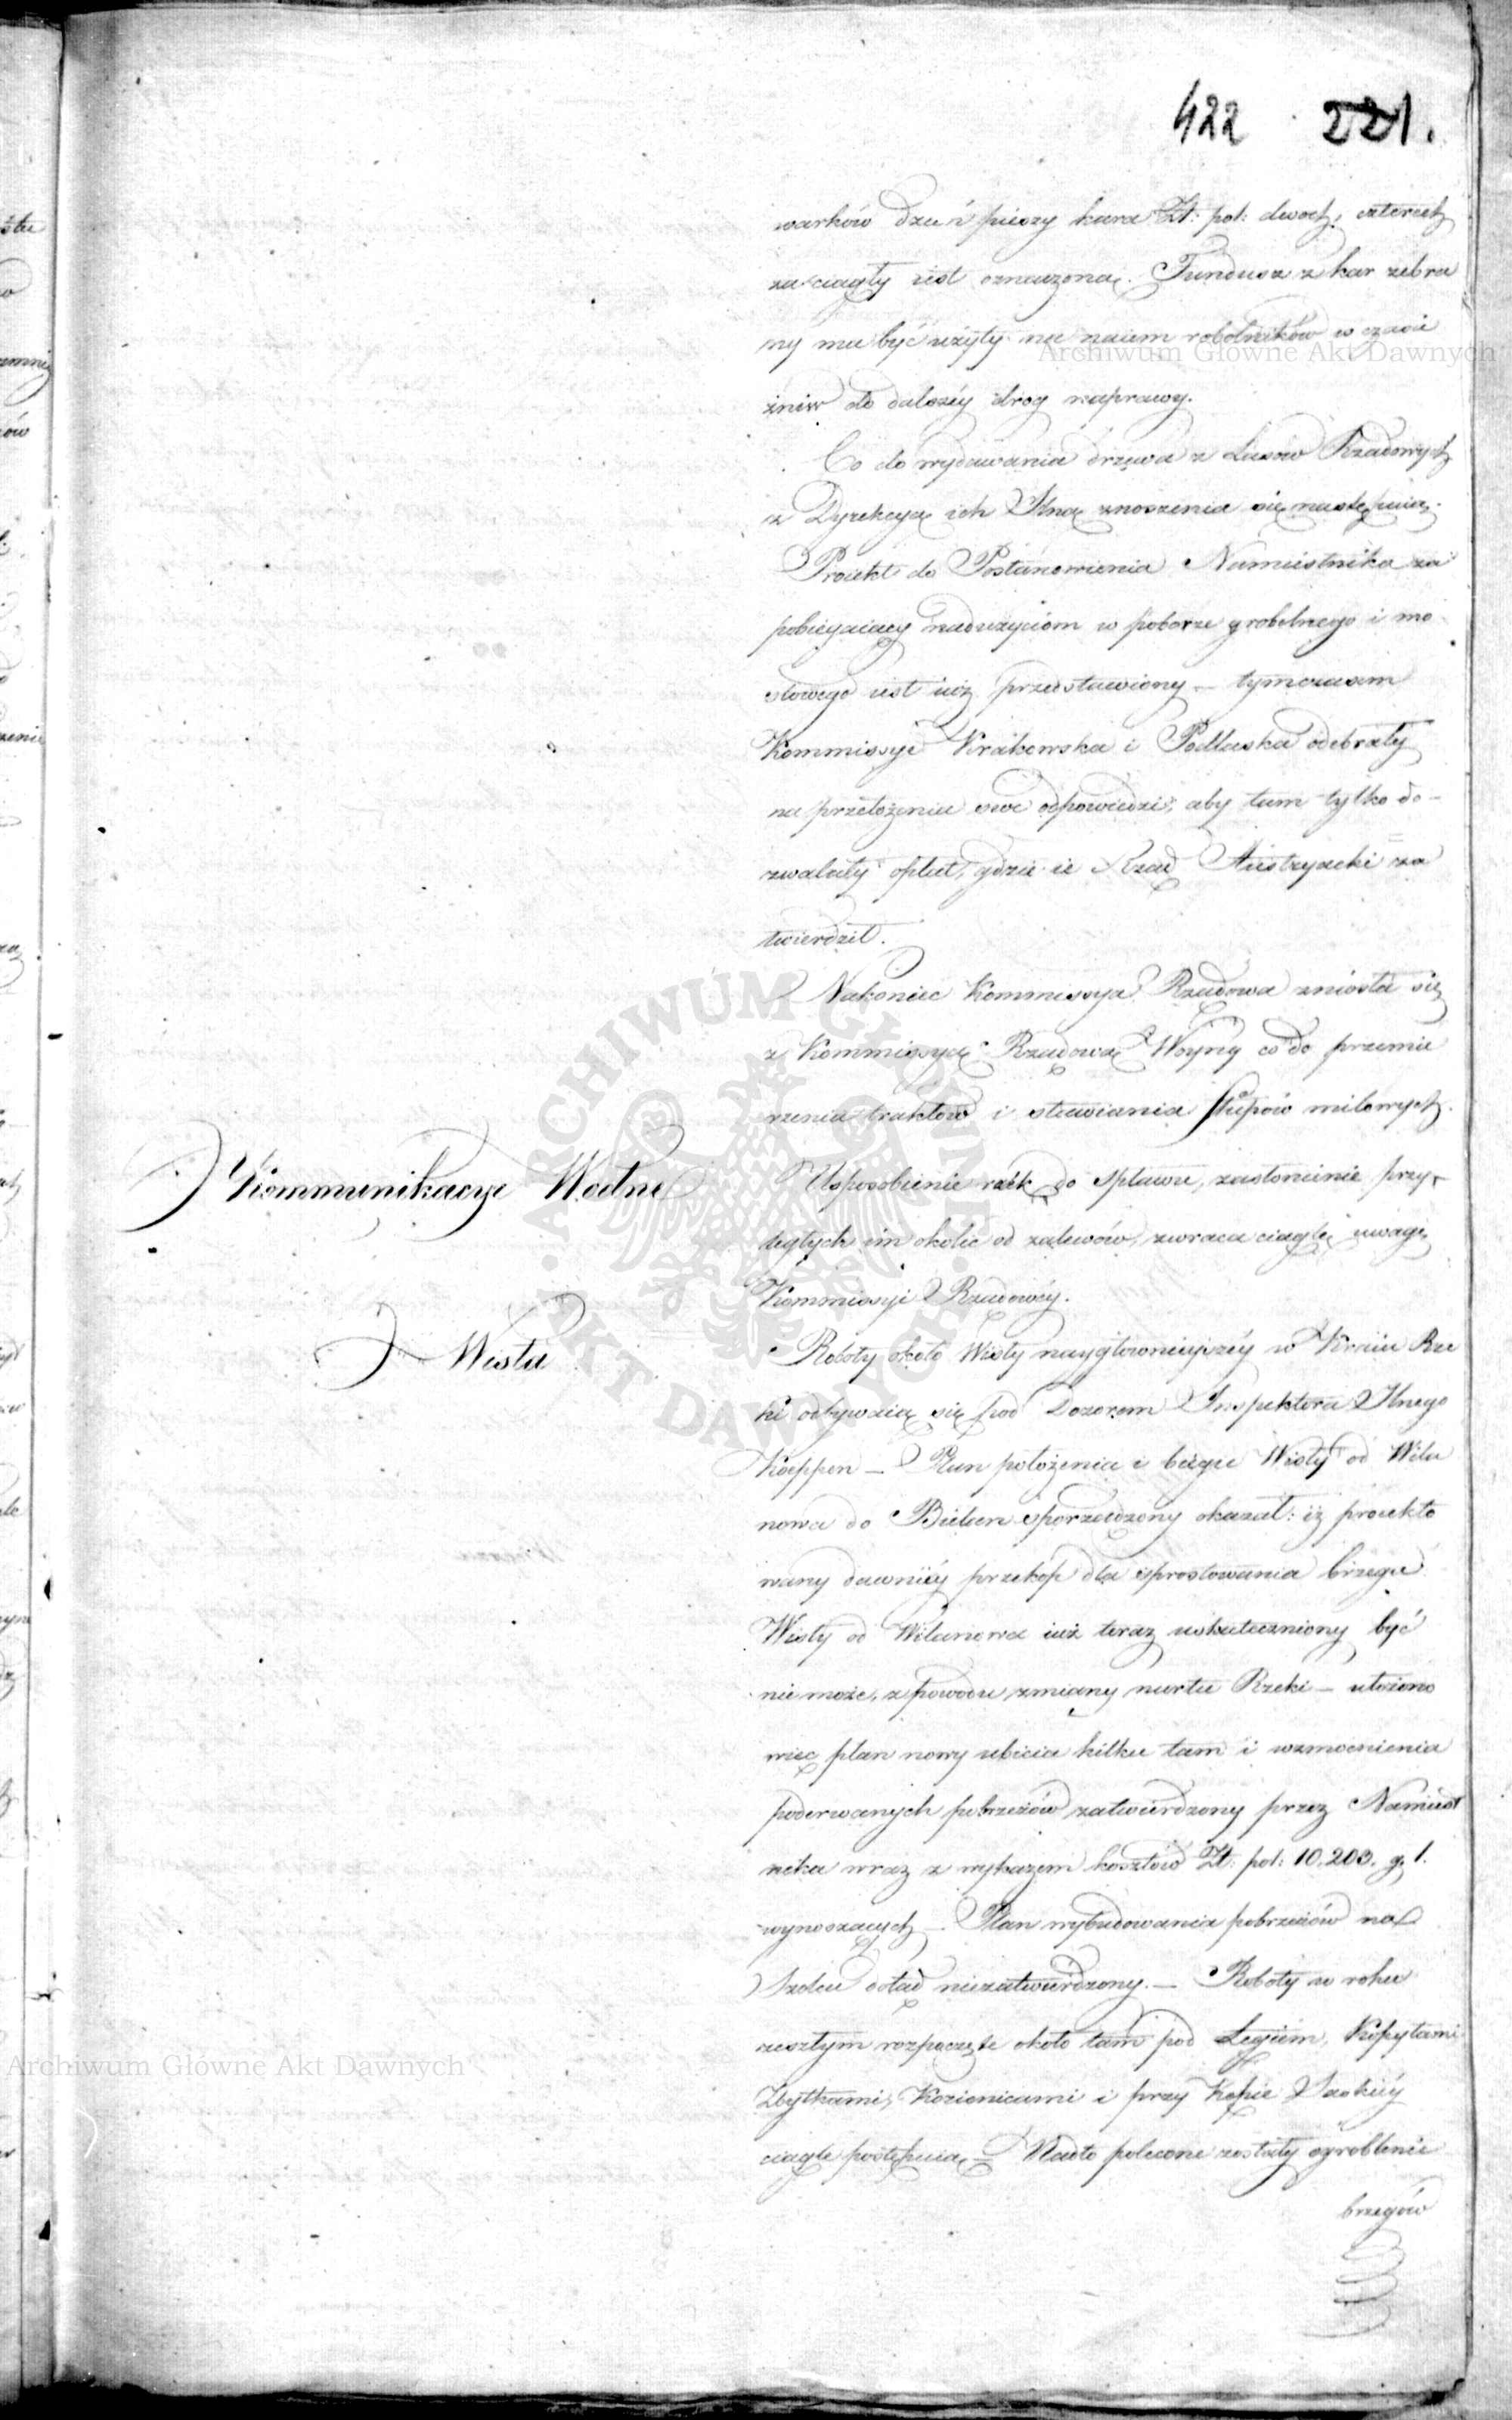 422 221.
warków dzień pieszy kara Zł: pol: dwóch, czterech
za ciągły iest oznaczoną. Fundusz z kar zebra
ny ma być użyty na naiem robotników w czasie
żniw do dalszéy dróg naprawy.
Co do wydawania drzewa z Lasów Rządowych
z Dyrekcyą ich Jlną znoszenia się następuią.
Proiekt do Postanowienia Namiestnika za
pobiegaiący nadużyciom w poborze grobelnego i mo
stowego iest iuż przedstawiony – tymczasem
Kommissye Krakowska i Podlaska odebrały
na przełożenia swe odpowiedzi, aby tam tylko do-
zwalały opłat, gdzie ie Rząd Austryacki za
twierdził.
Nakoniec Kommissya Rządowa zniosła się
z Kommissyą Rządową Woyny co do przemie
rzenia traktów i stawiania słupów milowych.
Kommunikacye Wodne
Usposobienie rzek do spławu, zasłonienie przy-
ległych im okolic od zalewów, zwraca ciągłe uwagę
Kommissyi Rządowéy.
Wisła
Roboty około Wisły naygłownieyszéy w Kraiu Rze
ki odbywaią się pod Dozorem Inspektora Jlnego
Koeppen – Plan położenia i biegu Wisły od Wila
nowa do Bielan sporządzony okazał: iż proiekto
wany dawniéy przekop dla sprostowania brzegu
Wisły od Wilanowa iuż teraz uskuteczniony być
nie może, z powodu zmiany nurtu Rzeki – ułożono
więc plan nowy ubicia kilku tam i wzmocnienia
poderwanych pobrzeżów zatwierdzony przez Namiest
nika wraz z wykazem kosztów Zł: pol: 10,203. g. 1.
wynoszących – Plan wybudowania pobrzeżów na
Szolcu dotąd niezatwierdzony. – Roboty w roku
zeszłym rozpoczęte około tam pod Łęgiem, Kopytami
Zbytkami, Kozienicami i przy Kępie Saskiéy
ciągle postępuią – Nadto polecone zostały ogroblenie
brzegów
Archiwum Główne Akt Dawnych
Archiwum Główne Akt Dawnych
ARCHIWUM GŁÓWNE AKT DAWNYCH